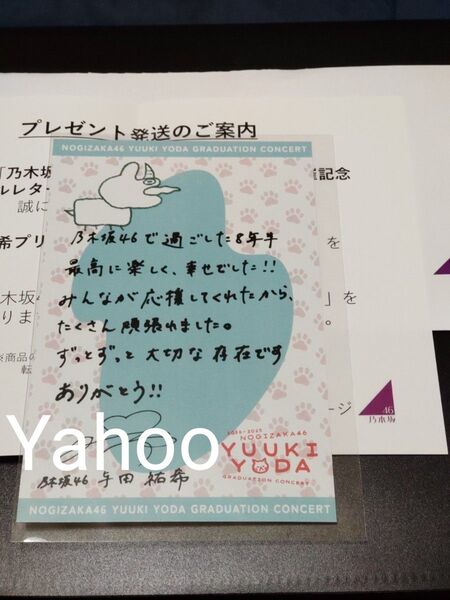 プレゼント発送のご案内
NOGIZAKA46 YUUKI YODA GRADUATION CONCERT
「乃木坂
記念
ルレター
誠に
希プリ
を
木坂4
」を
りま
。
※商品の
転
乃木坂46で過ごした8年半
最高に楽しく、幸せでした!!
みんなが応援してくれたから、
たくさん頑張れました。
ずっとずっと大切な存在です
ありがとう!!
乃木坂46 与田祐希
NOGIZAKA46
YUUKI
YODA
GRADUATION CONCERT
NOGIZAKA46 YUUKI YODA GRADUATION CONCERT
ージ
46
乃木坂
Yahoo